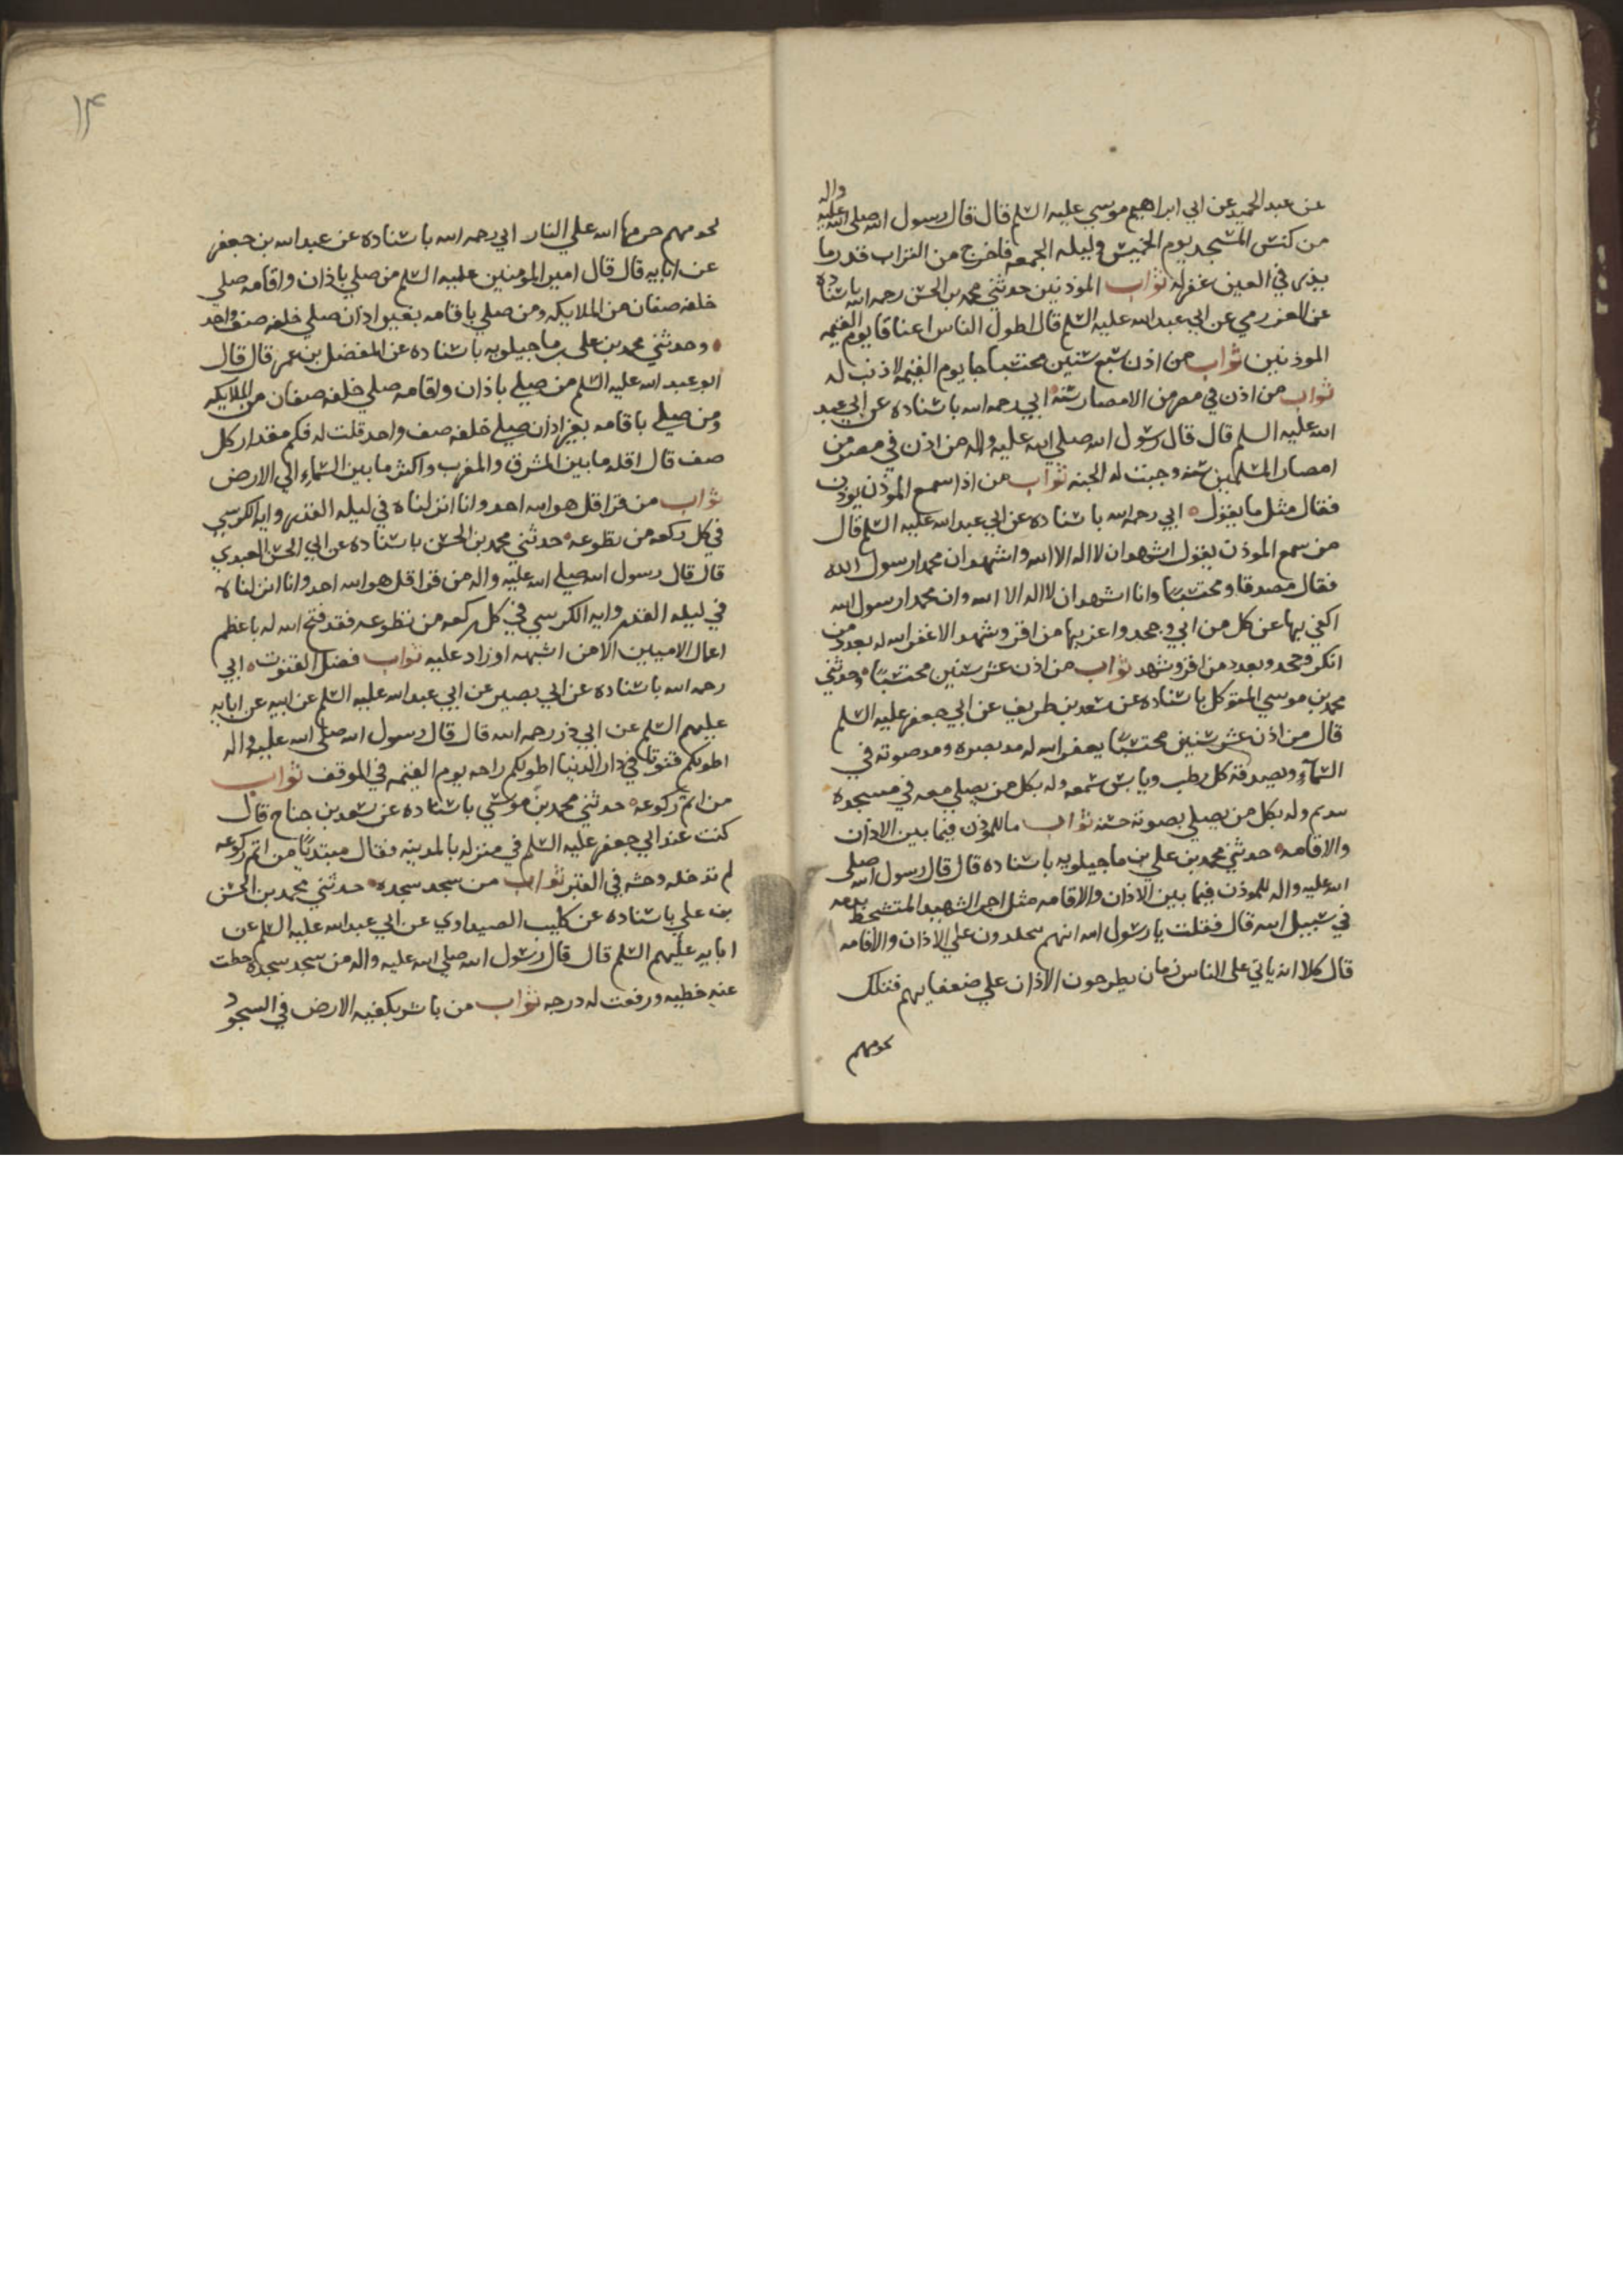 عن عبد الحميد عن ابي ابراهيم موسي عليه السلم قال قال رسول الله صلي الله عليه واله
من كنس المسجد يوم الخميس وليله الجمعه فاخرج من التراب قدر ما
يذرى في العين غفر له ثواب الموذنين حدثني محمد بن الحسن رحمه الله باسناده
عن العزرمي عن ابي عبد الله عليه السلم قال اطول الناس اعناقا يوم القيمه
الموذنين ثواب من اذن سبع سنين محتسبا جا يوم القيمه لا ذنب له
ثواب من اذن في مصر من الامصار سنه ابي رحمه الله باسناده عن ابي عبد
الله عليه السلم قال قال رسول الله صلي الله عليه واله من اذن في مصر من
امصار المسلمين سنه وجبت له الجنه ثواب من اذا سمع الموذن يوذن
فقال مثل ما يقول ابي رحمه الله باسناده عن ابي عبد الله عليه السلم قال
من سمع الموذن يقول اشهد ان لا اله الا الله واشهد ان محمدا رسول الله
فقال مصدقا ومحتسبًا وانا اشهد ان لا اله الا الله وان محمدا رسول الله
اكفي بها عن كل من ابي وجحد واعز بها من اقر وشهد الا غفر الله له بعدد من
انكر وجحد وبعدد من اقر وشهد ثواب من اذن عشر سنين محتسبًا وحدثني
محمد بن موسي المتوكل باسناده عن سعد بن طريف عن ابي جعفر عليه السلم
قال من اذن عشر سنين محتسبًا يغفر الله له مد بصره ومد صوته في
السمآء ويصدقه كل رطب ويابس سمعه وله بكل من يصلي معه في مسجده
سهم وله بكل من يصلي بصوته حسنه ثواب ما للموذن فيما بين الاذان
والاقامه حدثني محمد بن علي بن ماجيلويه باسناده قال قال رسول الله صلي
الله عليه واله للموذن فيما بين الاذان والاقامه مثل اجر الشهيد المتشحط بدمه
في سبيل الله قال فقلت يا رسول الله انهم يجلدون علي الاذان والاقامه
قال كلا انه ياتي على الناس زمان يطرحون الاذان علي ضعفايهم فتلك
لحومهم
١٤
لحومهم حرمها الله علي النار ابي رحمه الله باسناده عن عبد الله بن جعفر
عن ابايه قال قال امير المومنين عليه السلم من صلي باذان واقامه صلي
خلفه صفان من الملايكه ومن صلي باقامه بغير اذان صلي خلفه صف واحد
وحدثني محمد بن علي ماجيلويه باسناده عن المفضل بن عمر قال قال
ابو عبد الله عليه السلم من صلي باذان واقامه صلي خلفه صفان من الملايكه
ومن صلي باقامه بغير اذان صلي خلفه صف واحد قلت له فكم مقدار كل
صف قال اقله ما بين المشرق والمغرب واكثر ما بين السماء الي الارض
ثواب من قرا قل هو الله احد وانا انزلناه في ليله القدر وايه الكرسي
في كل ركعه من تطوعه حدثني محمد بن الحسن باسناده عن ابي الحسن العبدي
قال قال رسول الله صلي الله عليه واله من قرا قل هو الله احد وانا انزلناه
في ليله القدر وايه الكرسي في كل ركعه من تطوعه فقد فتح الله له باعظم
اعمال الاميين الا من اشبهه او زاد عليه ثواب فضل القنوت ابي
رحمه الله باسناده عن ابي بصير عن ابي عبد الله عليه السلم عن ابيه عن ابايه
عليهم السلم عن ابي ذر رحمه الله قال قال رسول الله صلى الله عليه واله
اطولكم قنوتا في دار الدنيا اطولكم راحه يوم القيمه في الموقف ثواب
من اتم ركوعه حدثني محمد بن موسي باسناده عن سعد بن جناح قال
كنت عند ابي جعفر عليه السلم في منزله بالمدينه فقال مبتديًا من اتم ركوعه
لم تدخله وحشه في القبر ثواب من سجد سجده حدثني محمد بن الحسن
بن علي باسناده عن كليب الصيداوي عن ابي عبد الله عليه السلم عن
ابايه عليهم السلم قال قال رسول الله صلي الله عليه واله من سجد سجده حطت
عنه خطيه ورفعت له درجه ثواب من باشر بكفيه الارض في السجود